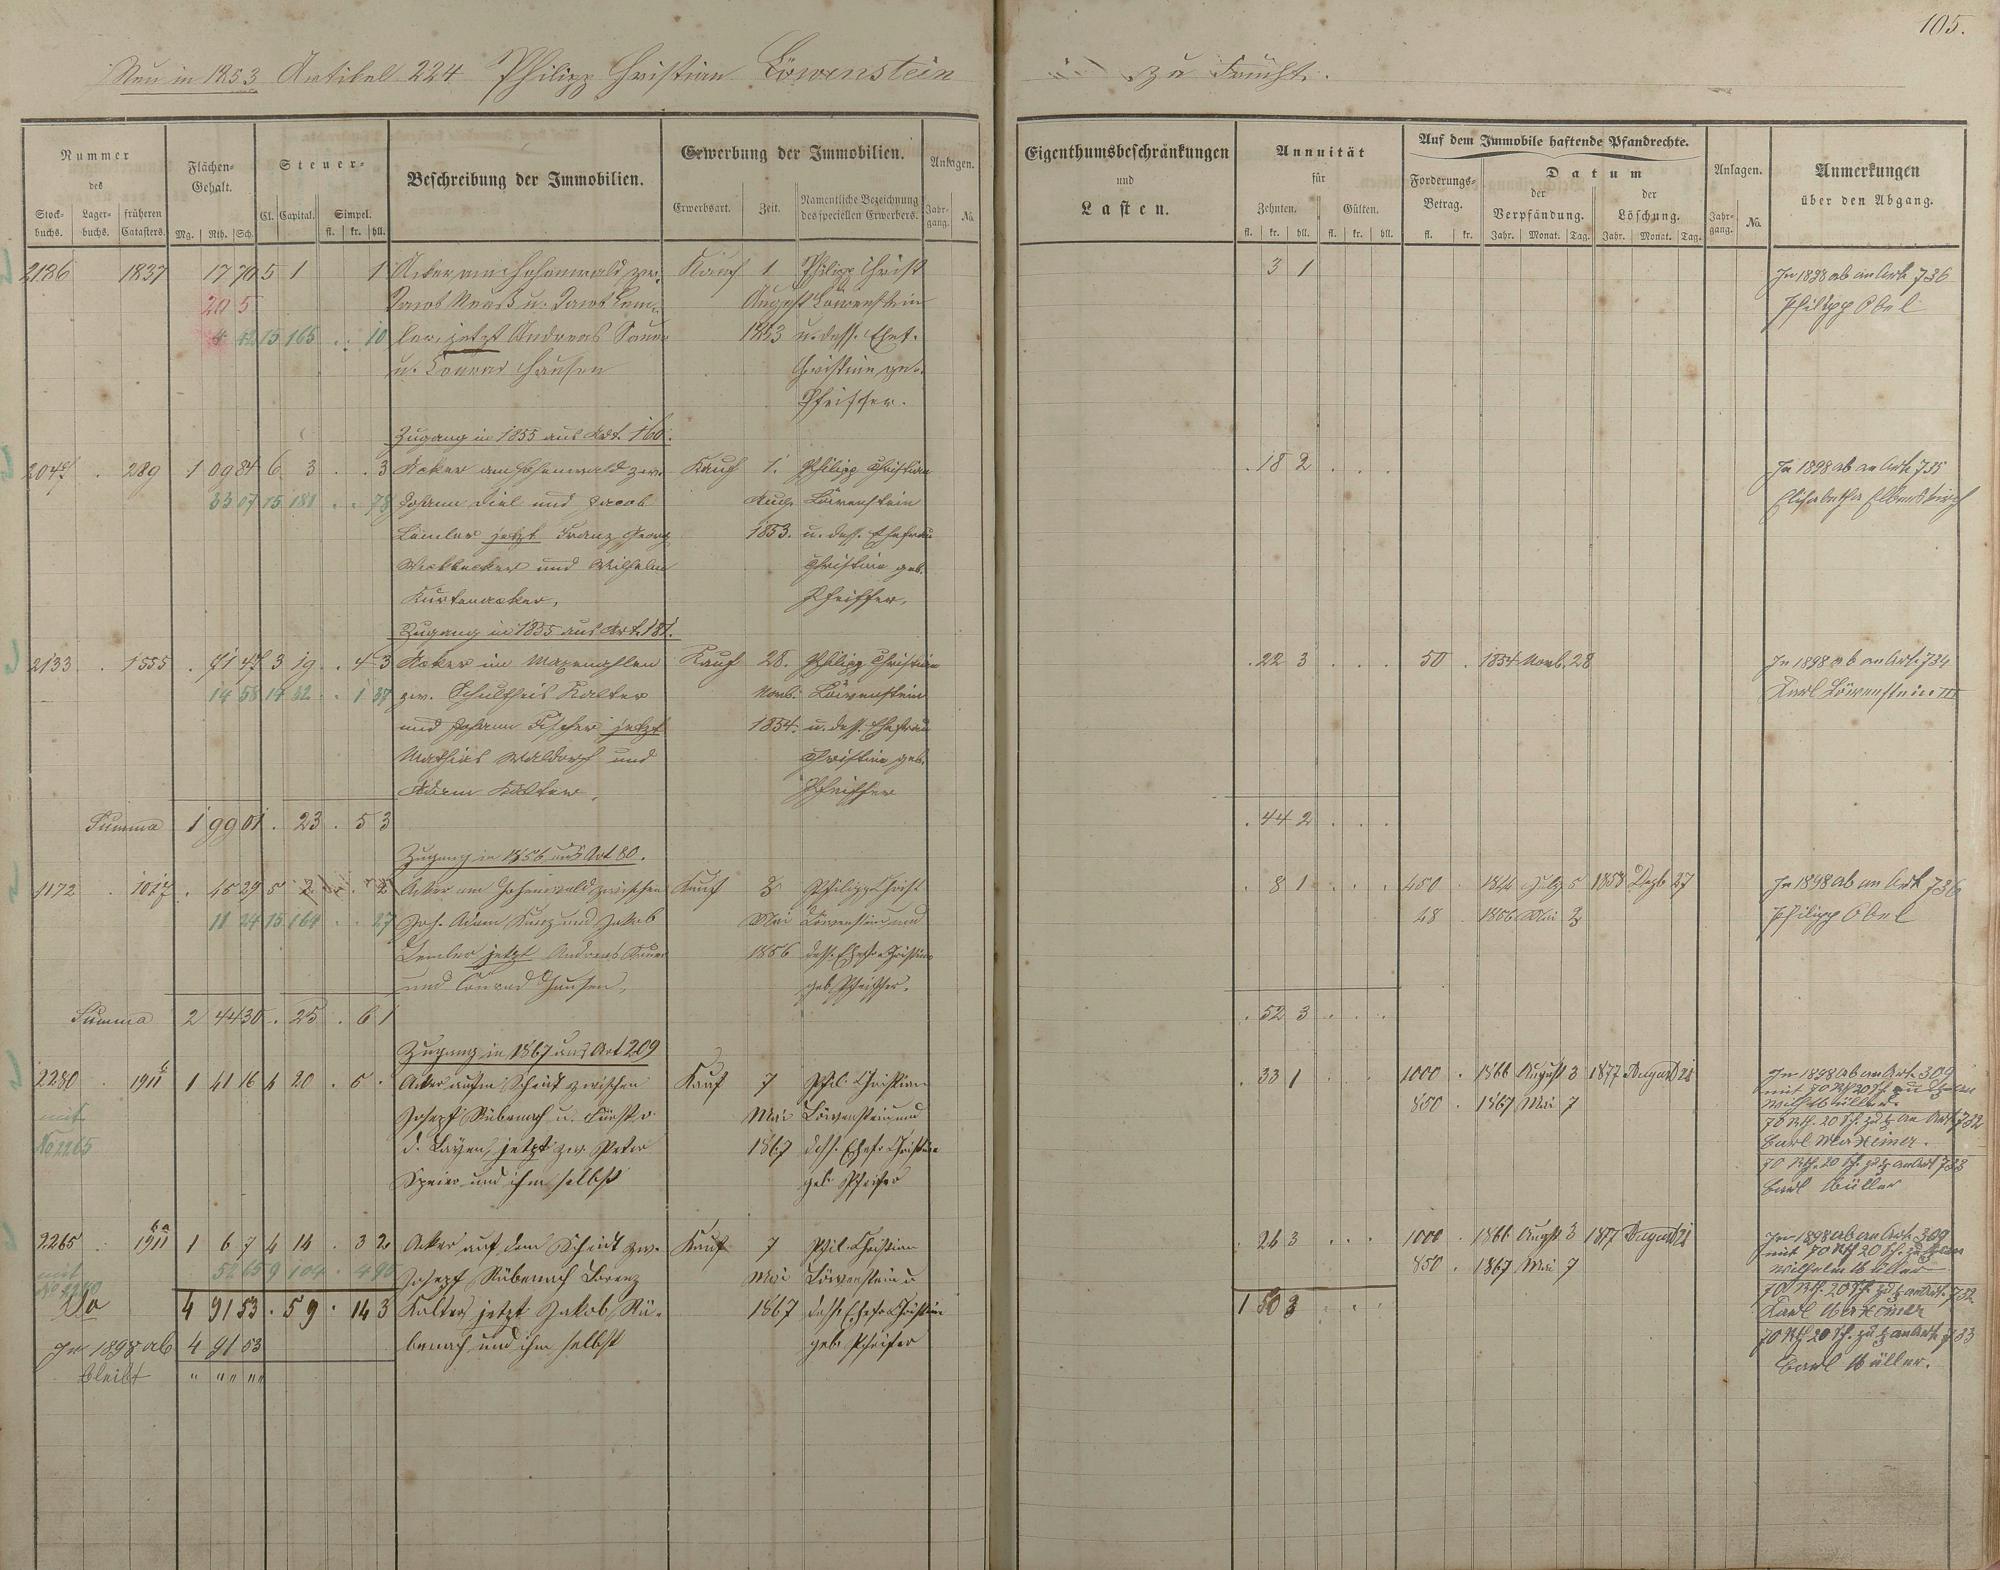 105.
Neu in 1853 Artikel 224 Philipp Christian Löwenstein zu Frücht.
Nummer
des
Stock-
buchs.
Lager-
buchs.
früheren
Catasters.
Flächen-
Gehalt.
Mg. Rth. Sch.
Steuer-
Cl. Capital. Simpel.
fl. kr. hll.
Beschreibung der Immobilien.
Erwerbung der Immobilien.
Erwerbsart. Zeit. Namentliche Bezeichnung
des speciellen Erwerbers.
Anlagen.
Jahr-
gang. No.
Eigenthumsbeschränkungen
und
Lasten.
Annuität
für
Zehnten. Gülten.
fl. kr. hll. fl. kr. hll.
Auf dem Immobile haftende Pfandrechte.
Forderungs-
Betrag.
fl. kr.
Datum
der
Verpfändung.
Jahr. Monat. Tag.
der
Löschung.
Jahr. Monat. Tag.
Anlagen.
Jahr-
gang. No.
Anmerkungen
über den Abgang.
2186 1837 17 70 5 1 1 Acker am Hohenwald zw. Kauf 1 Philipp Christ 3 1 In 1898 ab an Art. 736
20 5 August Löwenstein Philipp Obel
15 165 10 jetzt Andreas 1853 u. dess. Ehef.
u. Conrad Hansen Christine geb.
Pfeiffer.
Zugang in 1855 aus Art. 160.
289 1 09 84 6 3 3 Acker am Hohenwald zw. Kauf 1. Philipp Christian 18 2 In 1898 ab an Art. 735
33 07 15 181 78 Johann Diel und Jacob Aug. Löwenstein Elisabetha
Lemler jetzt Franz Georg 1853. u. dess. Ehefrau
und Wilhelm Christine geb.
Kurtenacker. Pfeiffer.
Zugang in 1855 aus Art. 181.
2133 1555 71 47 3 19 4 3 Acker im Kauf 28. Philipp Christian 22 3 50 1854 Novb. 28 In 1898 ab an Art. 734
14 58 1 87 zw. Schultheis Kalter Novb. Löwenstein Karl Löwenstein III
und Johann Fischer jetzt 1854. u. dess. Ehefrau
Mathias Waldorf und Christine geb.
Adam Kalter. Pfeiffer
Summa 1 99 01 23 5 3 44 2
Zugang in 1856 aus Art 80.
1172 1017 45 29 5 2 2 Acker am Hohenwald zwischen Kauf 3 Philipp Christ 8 1 450 1844 July 5 1858 Dezb 27 In 1898 ab an Art. 736
11 24 15 164 27 Joh. Adam Kurz und Jakob Mai Löwenstein und 48 1856 Mai 3 Philipp Obel
Lemler jetzt Andreas 1856 dess. Ehefr. Christine
und Conrad Hansen. geb. Pfeiffer.
Summa 2 44 30 25 6 1 52 3
Zugang in 1867 aus Art 209
2280 1911 1 41 16 4 20 5 Acker auf'm Scheid zwischen Kauf 7 Phil. Christian 33 1 1000 1866 August 3 1877 August 21 In 1898 ab an Art. 309
mit Joseph Rübenach u. Fürst v. Mai Löwenstein und 850 1867 Mai 7 mit 70 Rth 20 Sch. zu
No 2265 d. Layen, jetzt zw. Peter 1867 dess. Ehefr. Christine Wilh. Müller.
Speier und ihm selbst geb. Pfeifer 70 Rth. 20 Sch. zu an Art. 732
Carl Merxeimer.
70 Rth. 20 Sch. zu an Art 733
Carl Müller
2265 1911 1 6 7 4 14 3 2 Acker auf dem Scheid zw. Kauf 7 Phil. Christian 26 3 1000 1866 Augst 3 1877 August 21 In 1898 ab an Art. 309
mit 104 Joseph Rübenach Lorenz Mai Löwenstein u 850 1867 Mai 7 mit 70 Rth 20 Sch. zu
No 2280 Wilhelm Müller
Sa 4 91 53 59 14 3 Kalter jetzt Jakob Rü- 1867 dess. Ehefr. Christine 1 50 3 70 Rth. 20 Sch. zu an Art. 732
In 1898 ab 4 91 53 benach und ihm selbst geb. Pfeifer Karl Merxeimer
bleibt " "" "" 70 Rth 20 Sch. zu an Art. 733
Carl Müller.